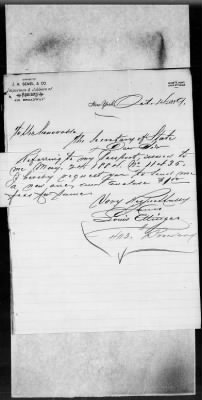 J. H. SEMEL & CO
Importers & Jobbers of
443 BROADWAY
New York Oct. 12 1889.
To the Honorable
The Secretary of State
Dear Sir
Referring to my Passport issued to
me May. 24th No. 11435.
I hereby request you to send me
a new one, and enclose $1.00
fees for same.
Very Respectfully
Yours
Louis Ettinger
443 Broadway